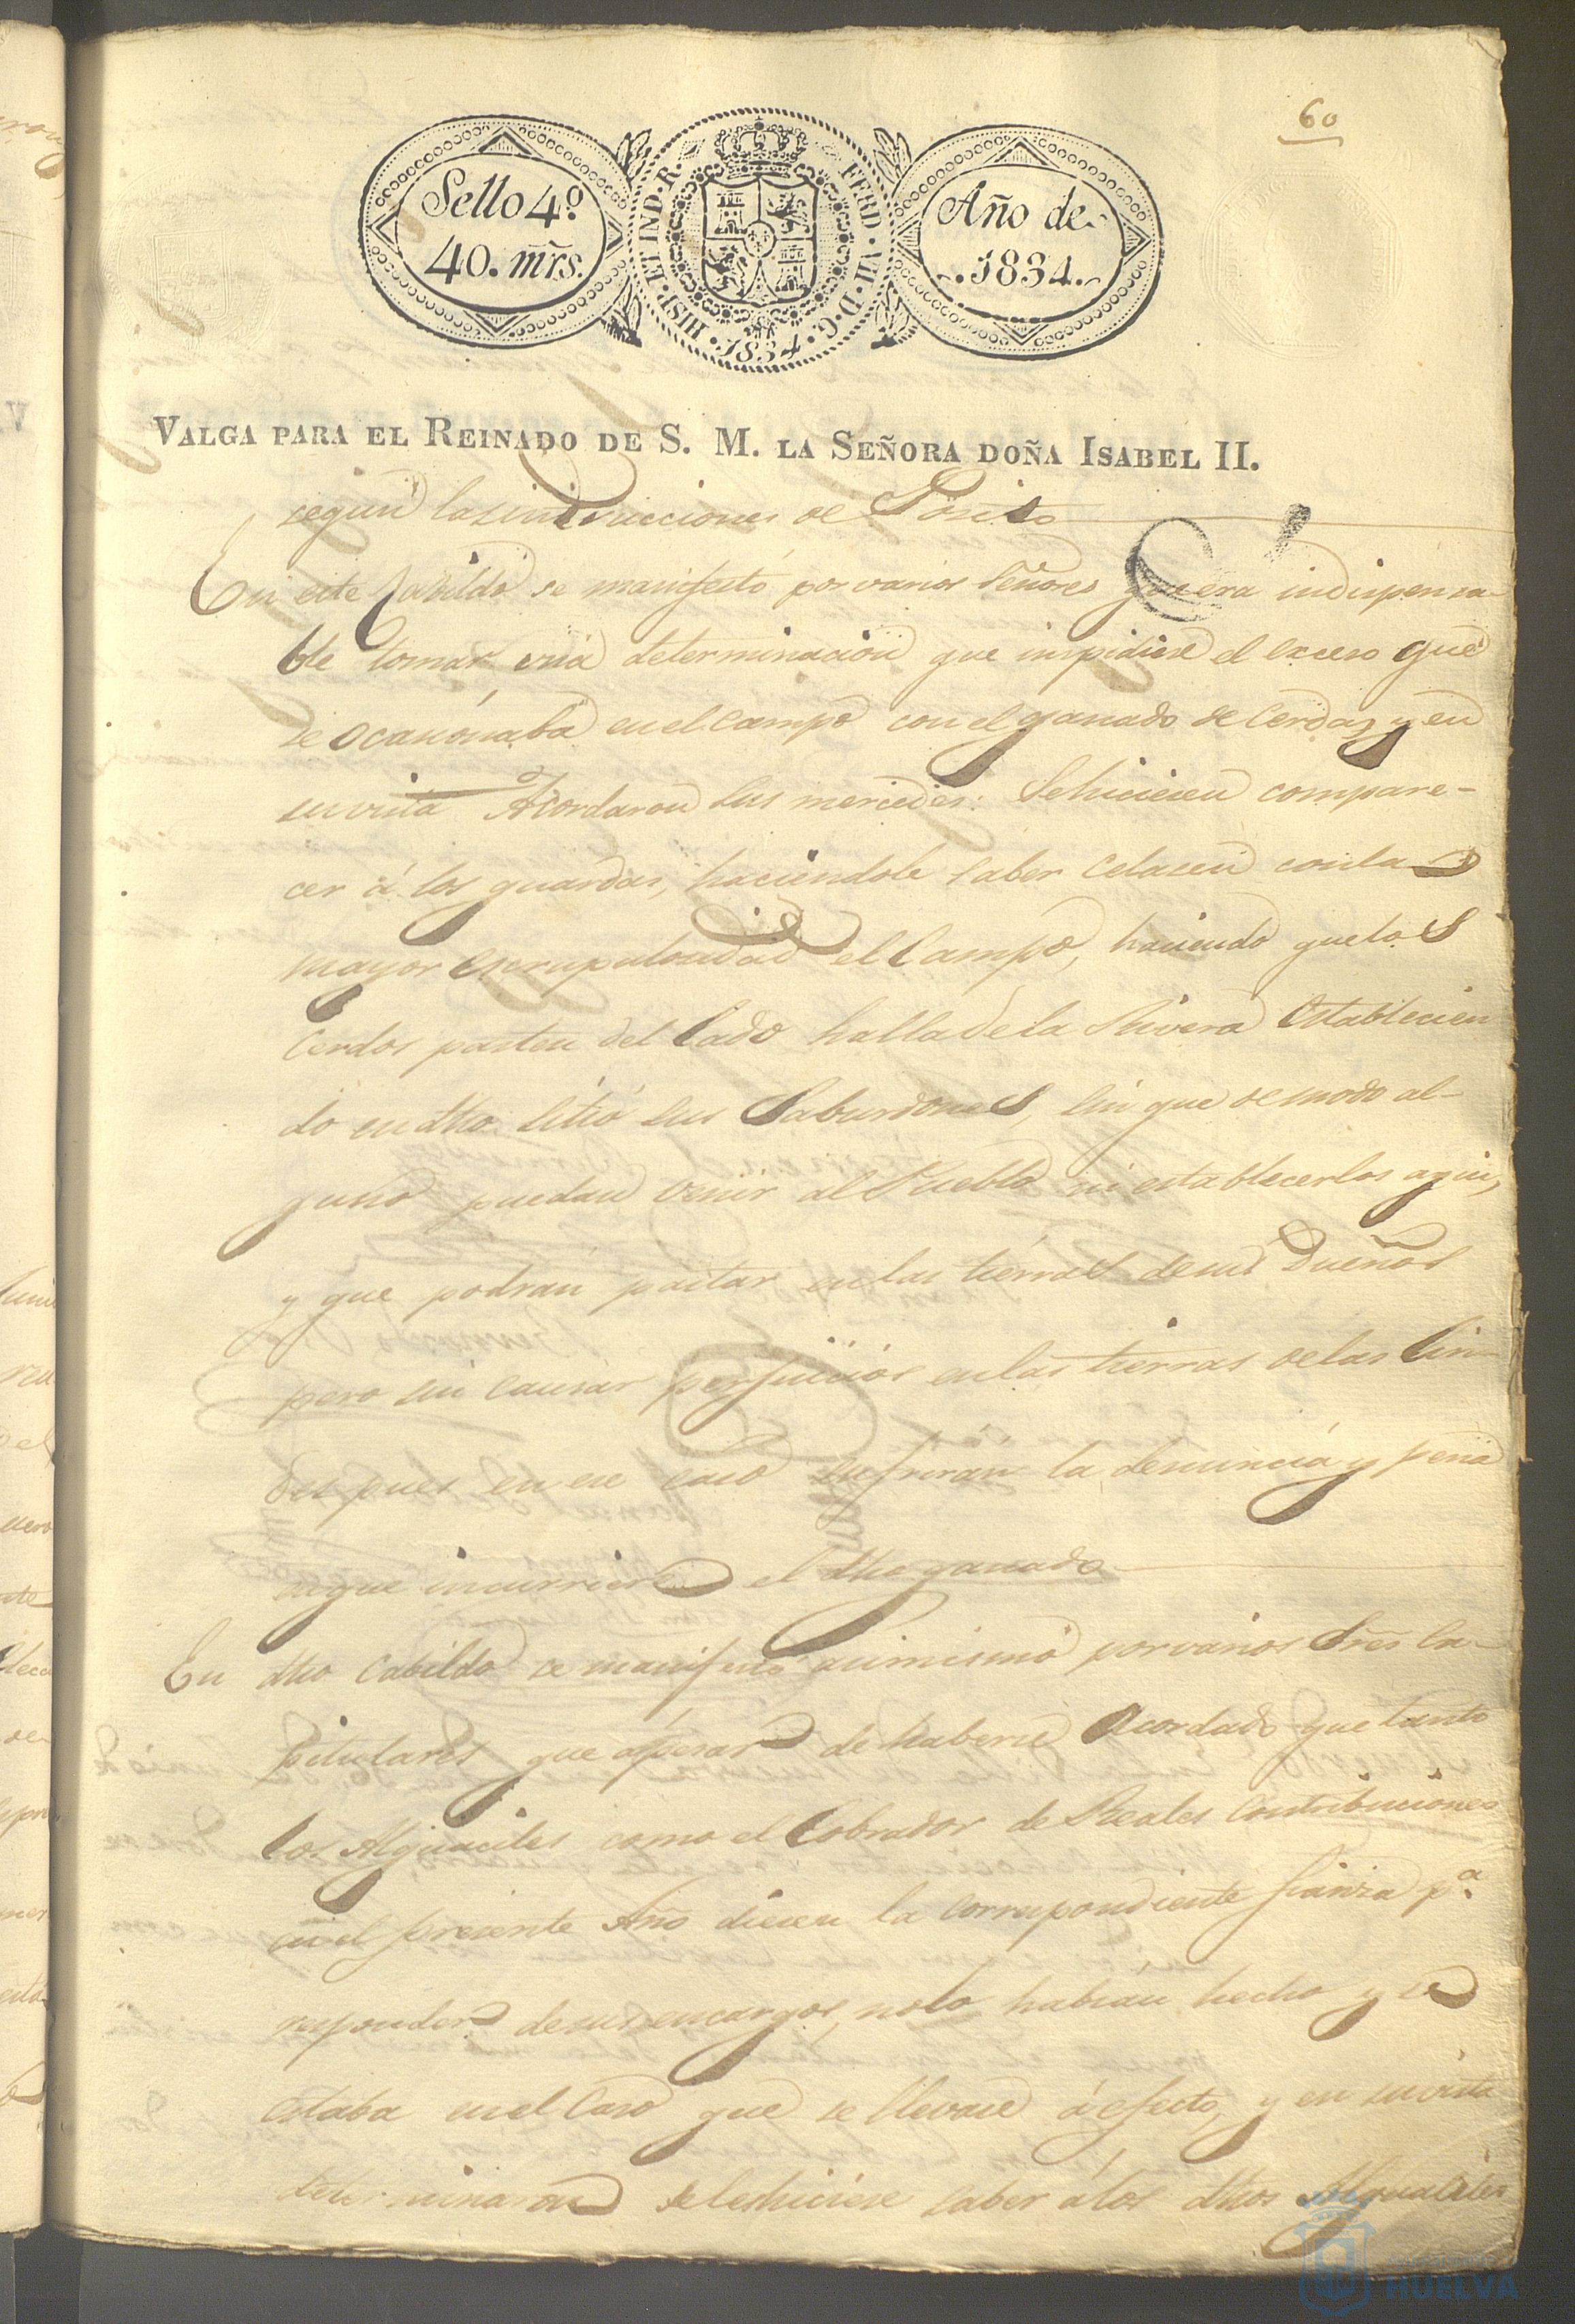 60
Sello 4º
40. mrs.
HISP. ET IND. R. FERD. VII. D. G. 1834.
Año de
1834.
VALGA PARA EL REINADO DE S. M. LA SEÑORA DOÑA ISABEL II.
segun las instrucciones de Posito
En este Cabildo se manifestó por varios Señores que era indispensa-
ble tomar una determinacion que impidiese el exceso que
se ocacionaba en el campo con el ganado de Cerda, y en
su vista Acordaron sus mercedes: Se hiciesen compare-
cer á los guardas, haciendole saber celasen con la
mayor escrupulosidad el Campo, haciendo que los
Cerdos pasten del lado halla de la Rivera establecien
do en dho sitio sus Saburdones, sin que de modo al-
guno puedan venir al Pueblo ni establecerlos aqui,
y que podran pastar en las tierras de sus Dueños
pero sin causar perjuicios en las tierras de las lin-
des pues en ese caso sufriran la denuncia y pena
aque incurriese el dho ganado
En dho Cabildo se manifestó asimismo por varios Sres Ca-
pitulares que apesar de haberse Acordado que tanto
los Alguaciles como el Cobrador de Reales Contribuciones
en el presente Año diesen la correspondiente fianza pª
responder de sus encargos, no lo habian hecho y se
estaba en el Caso que se llevase á efecto, y en su vista
determinaron se les hiciese saber á los dhos Alguaciles
HUELVA